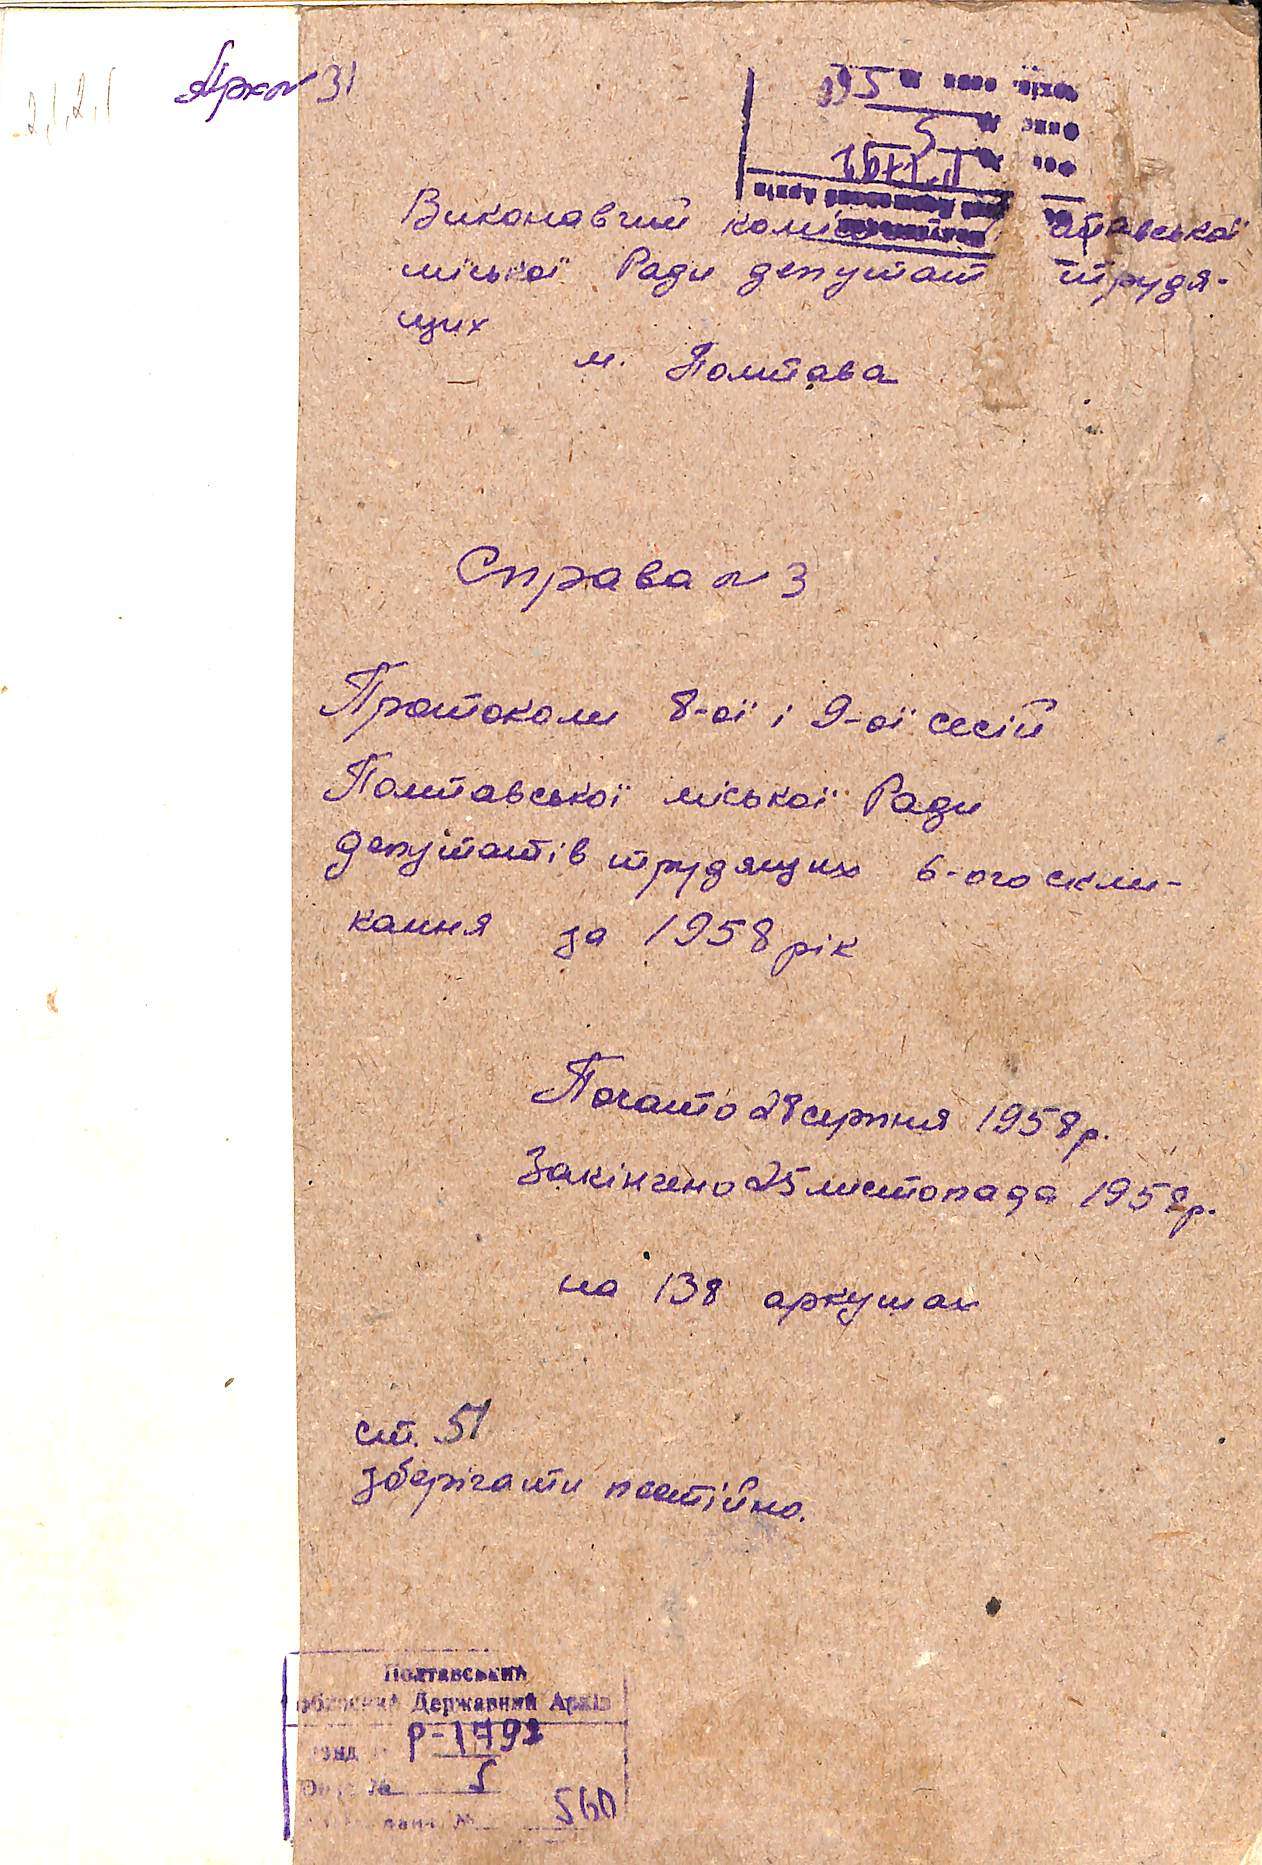 2,1,2,1
Арк № 31
Виконавчий коміт тавської
міської Ради депутат трудя-
щих
м. Полтава
Справа № 3
Протоколи 8-ої і 9-ої сесій
Полтавської міської Ради
депутатів трудящих 6-ого скли-
кання за 1958 рік
Почато 28 серпня 1958 р.
Закінчено 25 листопада 1958 р.
на 138 аркушах
ст. 51
зберігати постійно.
Полтавський
обласний Державний Архів
Фонд Р-1792
Опис № 5
№ 560